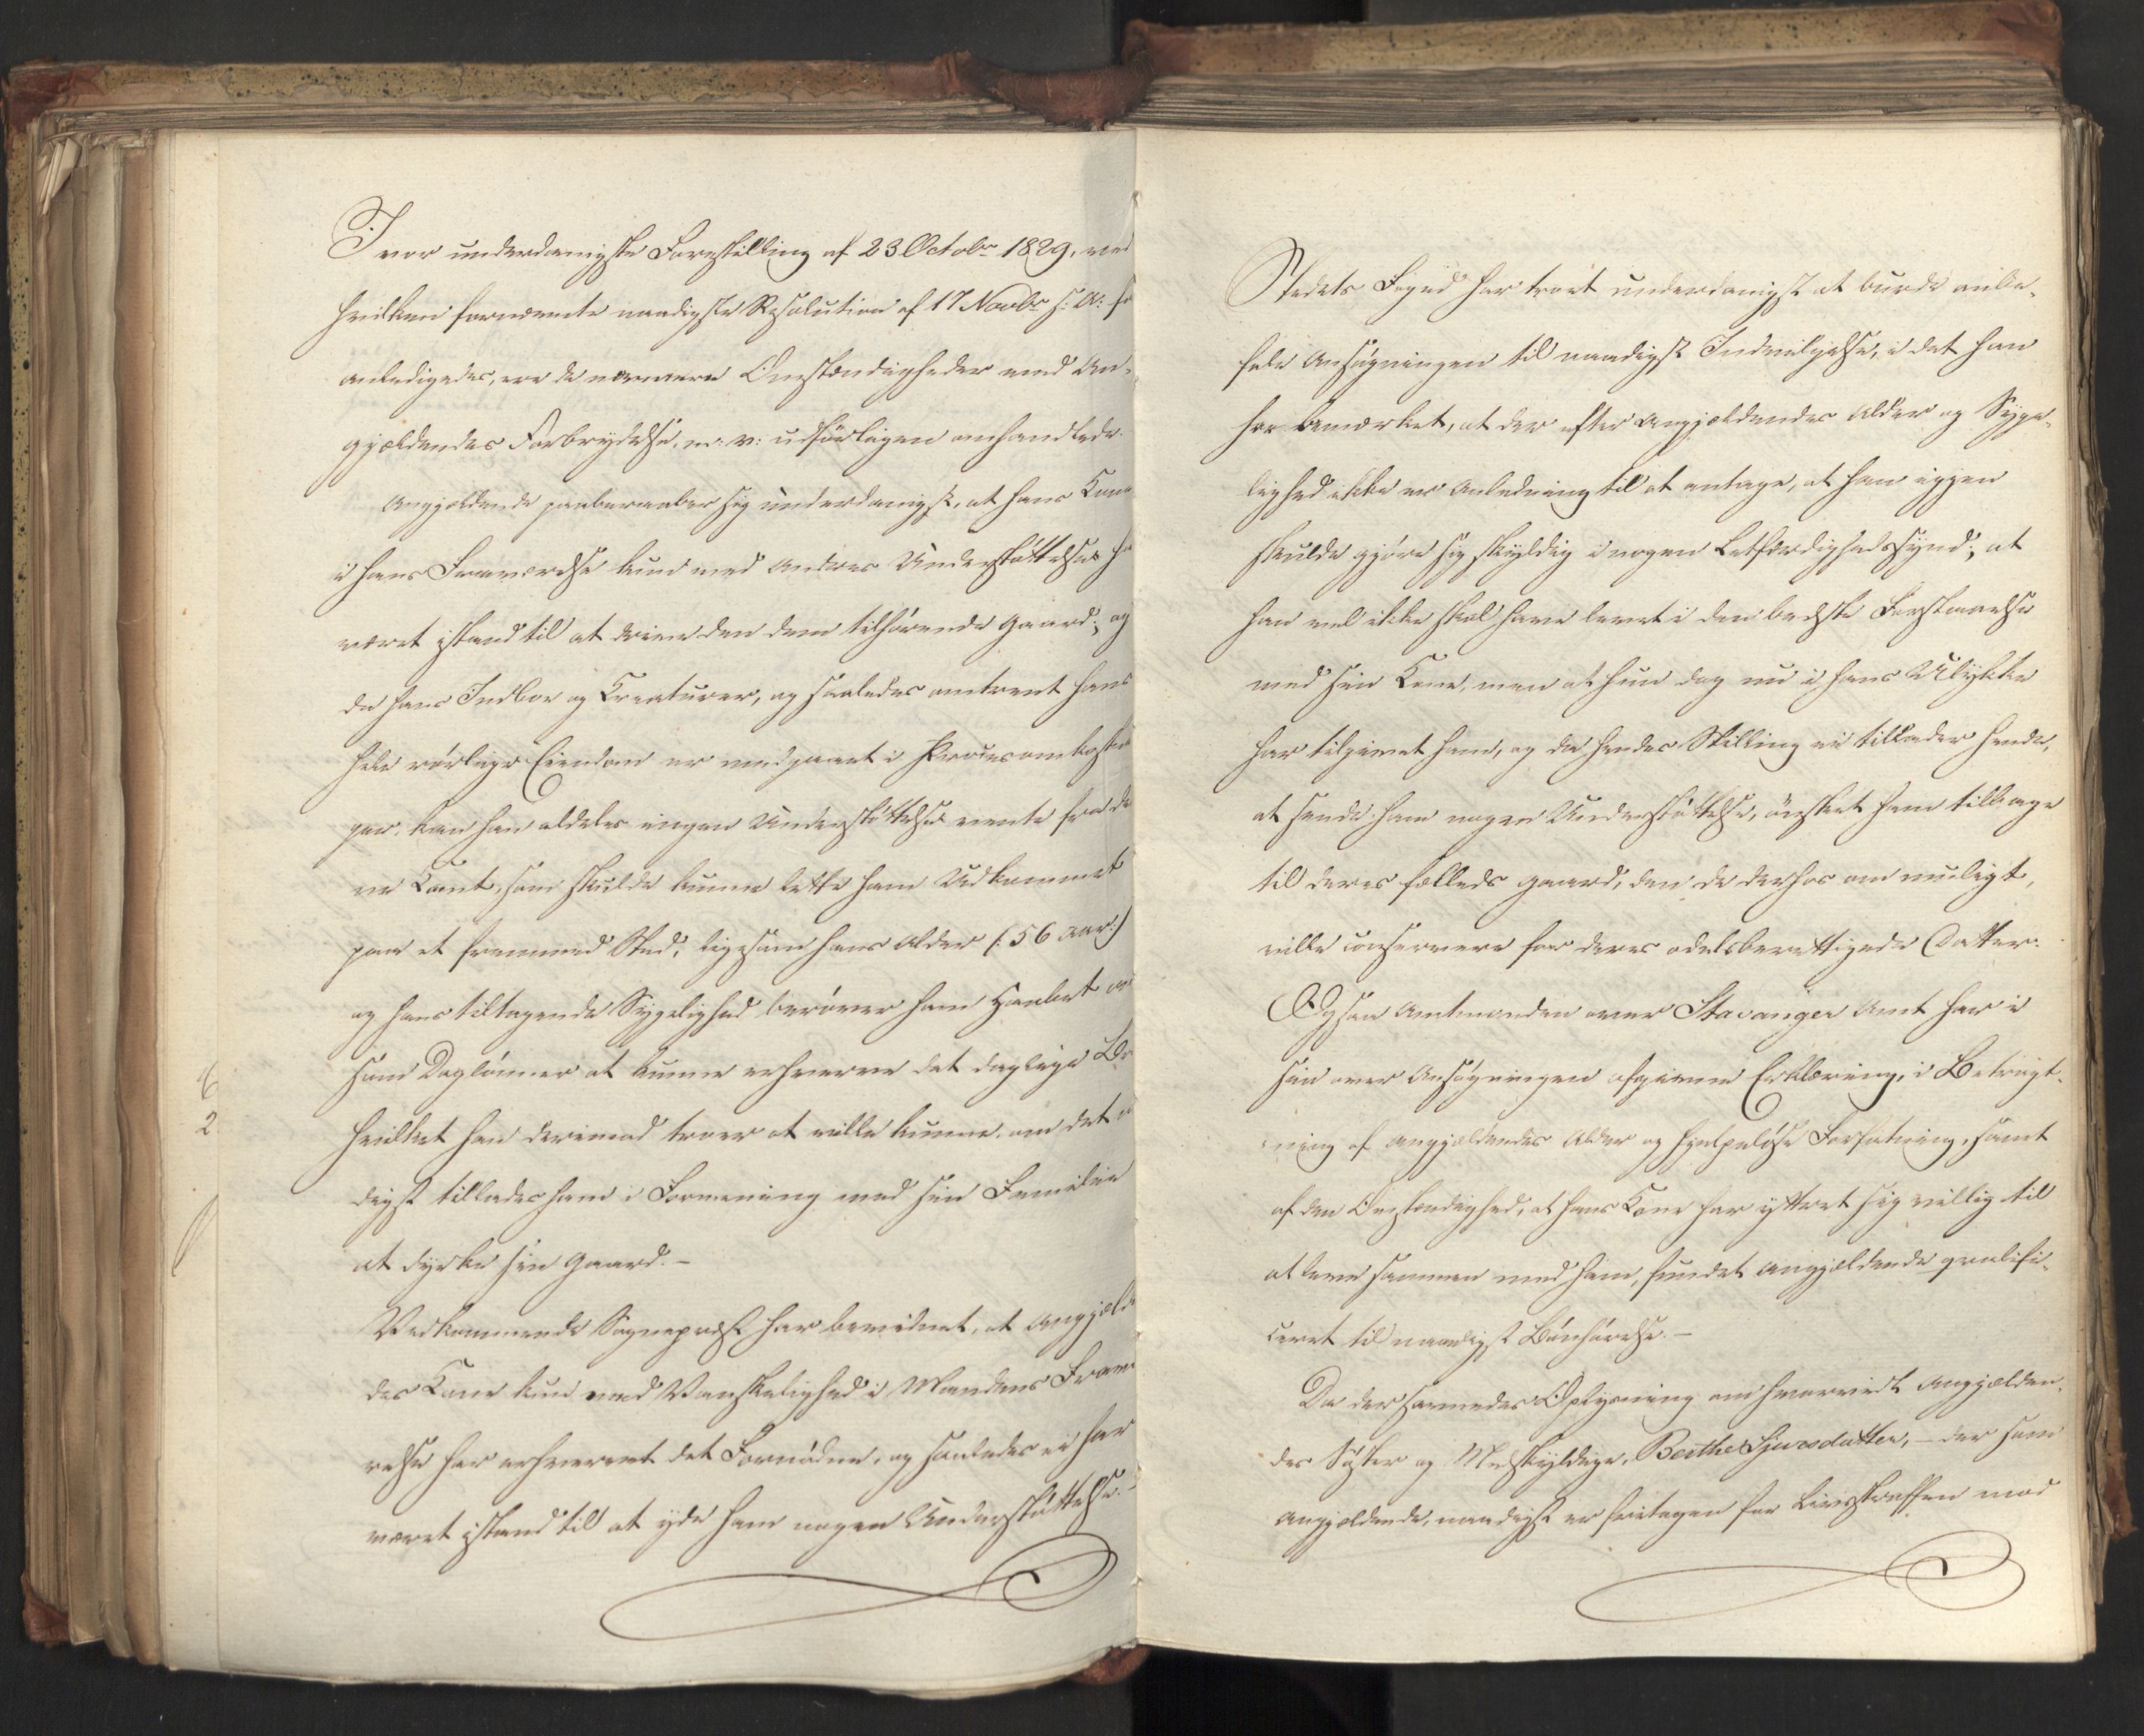 I vor underdanigste Forestilling af 23 Octobr 1829, ved
hvilken fornævnte naadigste Resolution af 17 Novbr s: A: fo
anledigedes, ere de nærmere Omstændigheder med An-
gjældendes Forbrydelse, m: v: udførligen omhandlede.
Angjældende paaberaaber sig underdanigst, at hans Kone
i hans Fraværelse kun med Andres Understøttelse ha
været istand til at drive den dem tilhørende Gaard; og
da hans Indboe og Creaturer, og saaledes omtrent hans
hele rørlige Eiendom er medgaaet i Procesomkostnin
ger, kan han aldeles ingen Understøttelse vente fra de
re Kant, som skulde kunne lette ham Udkommet
paa et fremmed Sted, ligesom hans Alder (: 56 Aar :)
og hans tiltagende Sygelighed berøver ham Haabet om
som Daglønner at kunne erhverve det daglige Brø
hvilket han derimod troer at ville kunne, om det n
digst tillades ham i Forening med sin Familie
at dyrke sin Gaard. –
Vedkommende Sognepræst har bevidnet, at Angjælden
des Kone kun med Vanskelighed i Mandens Fravæ
relse har erhvervet det Fornødne, og saaledes ei har
været istand til at yde ham nogen Understøttelse. –
6
2
Stedets Foged har troet underdanigst at burde anbe-
fale Ansøgningen til naadigst Indvilgelse, i det han
har bemærket, at der efter Angjældendes Alder og Syge-
lighed ikke er Anledning til at antage, at han igjen
skulde gjøre sig skyldig i nogen Letfærdighedssynd; at
han vel ikke skal have levet i den bedste Forstaaelse
med sin Kone, men at hun dog nu i hans Ulykke
har tilgivet ham, og da hendes Stilling ei tillader hende,
at sende ham nogen Understøttelse, ønsket ham tilbage
til deres fælleds Gaard, den de derhos om muligt,
ville conservere for deres odelsberettigede Datter.
Ogsaa Amtmanden over Stavanger Amt har i
sin over Ansøgningen afgivne Erklæring, i Betragt-
ning af Angjældendes Alder og hjelpeløse Forfatning, samt
af den Omstændighed, at hans Kone har yttret sig villig til
at leve sammen med ham, fundet Angjældende qvalifi-
ceret til naadigst Bønhørelse. –
Da der savnedes Oplysning om hvorvidt Angjælden-
des Søster og Medskyldige, Berthe Sjursdatter, – der som
Angjældende, naadigst er fritagen for Livsstraffen mod